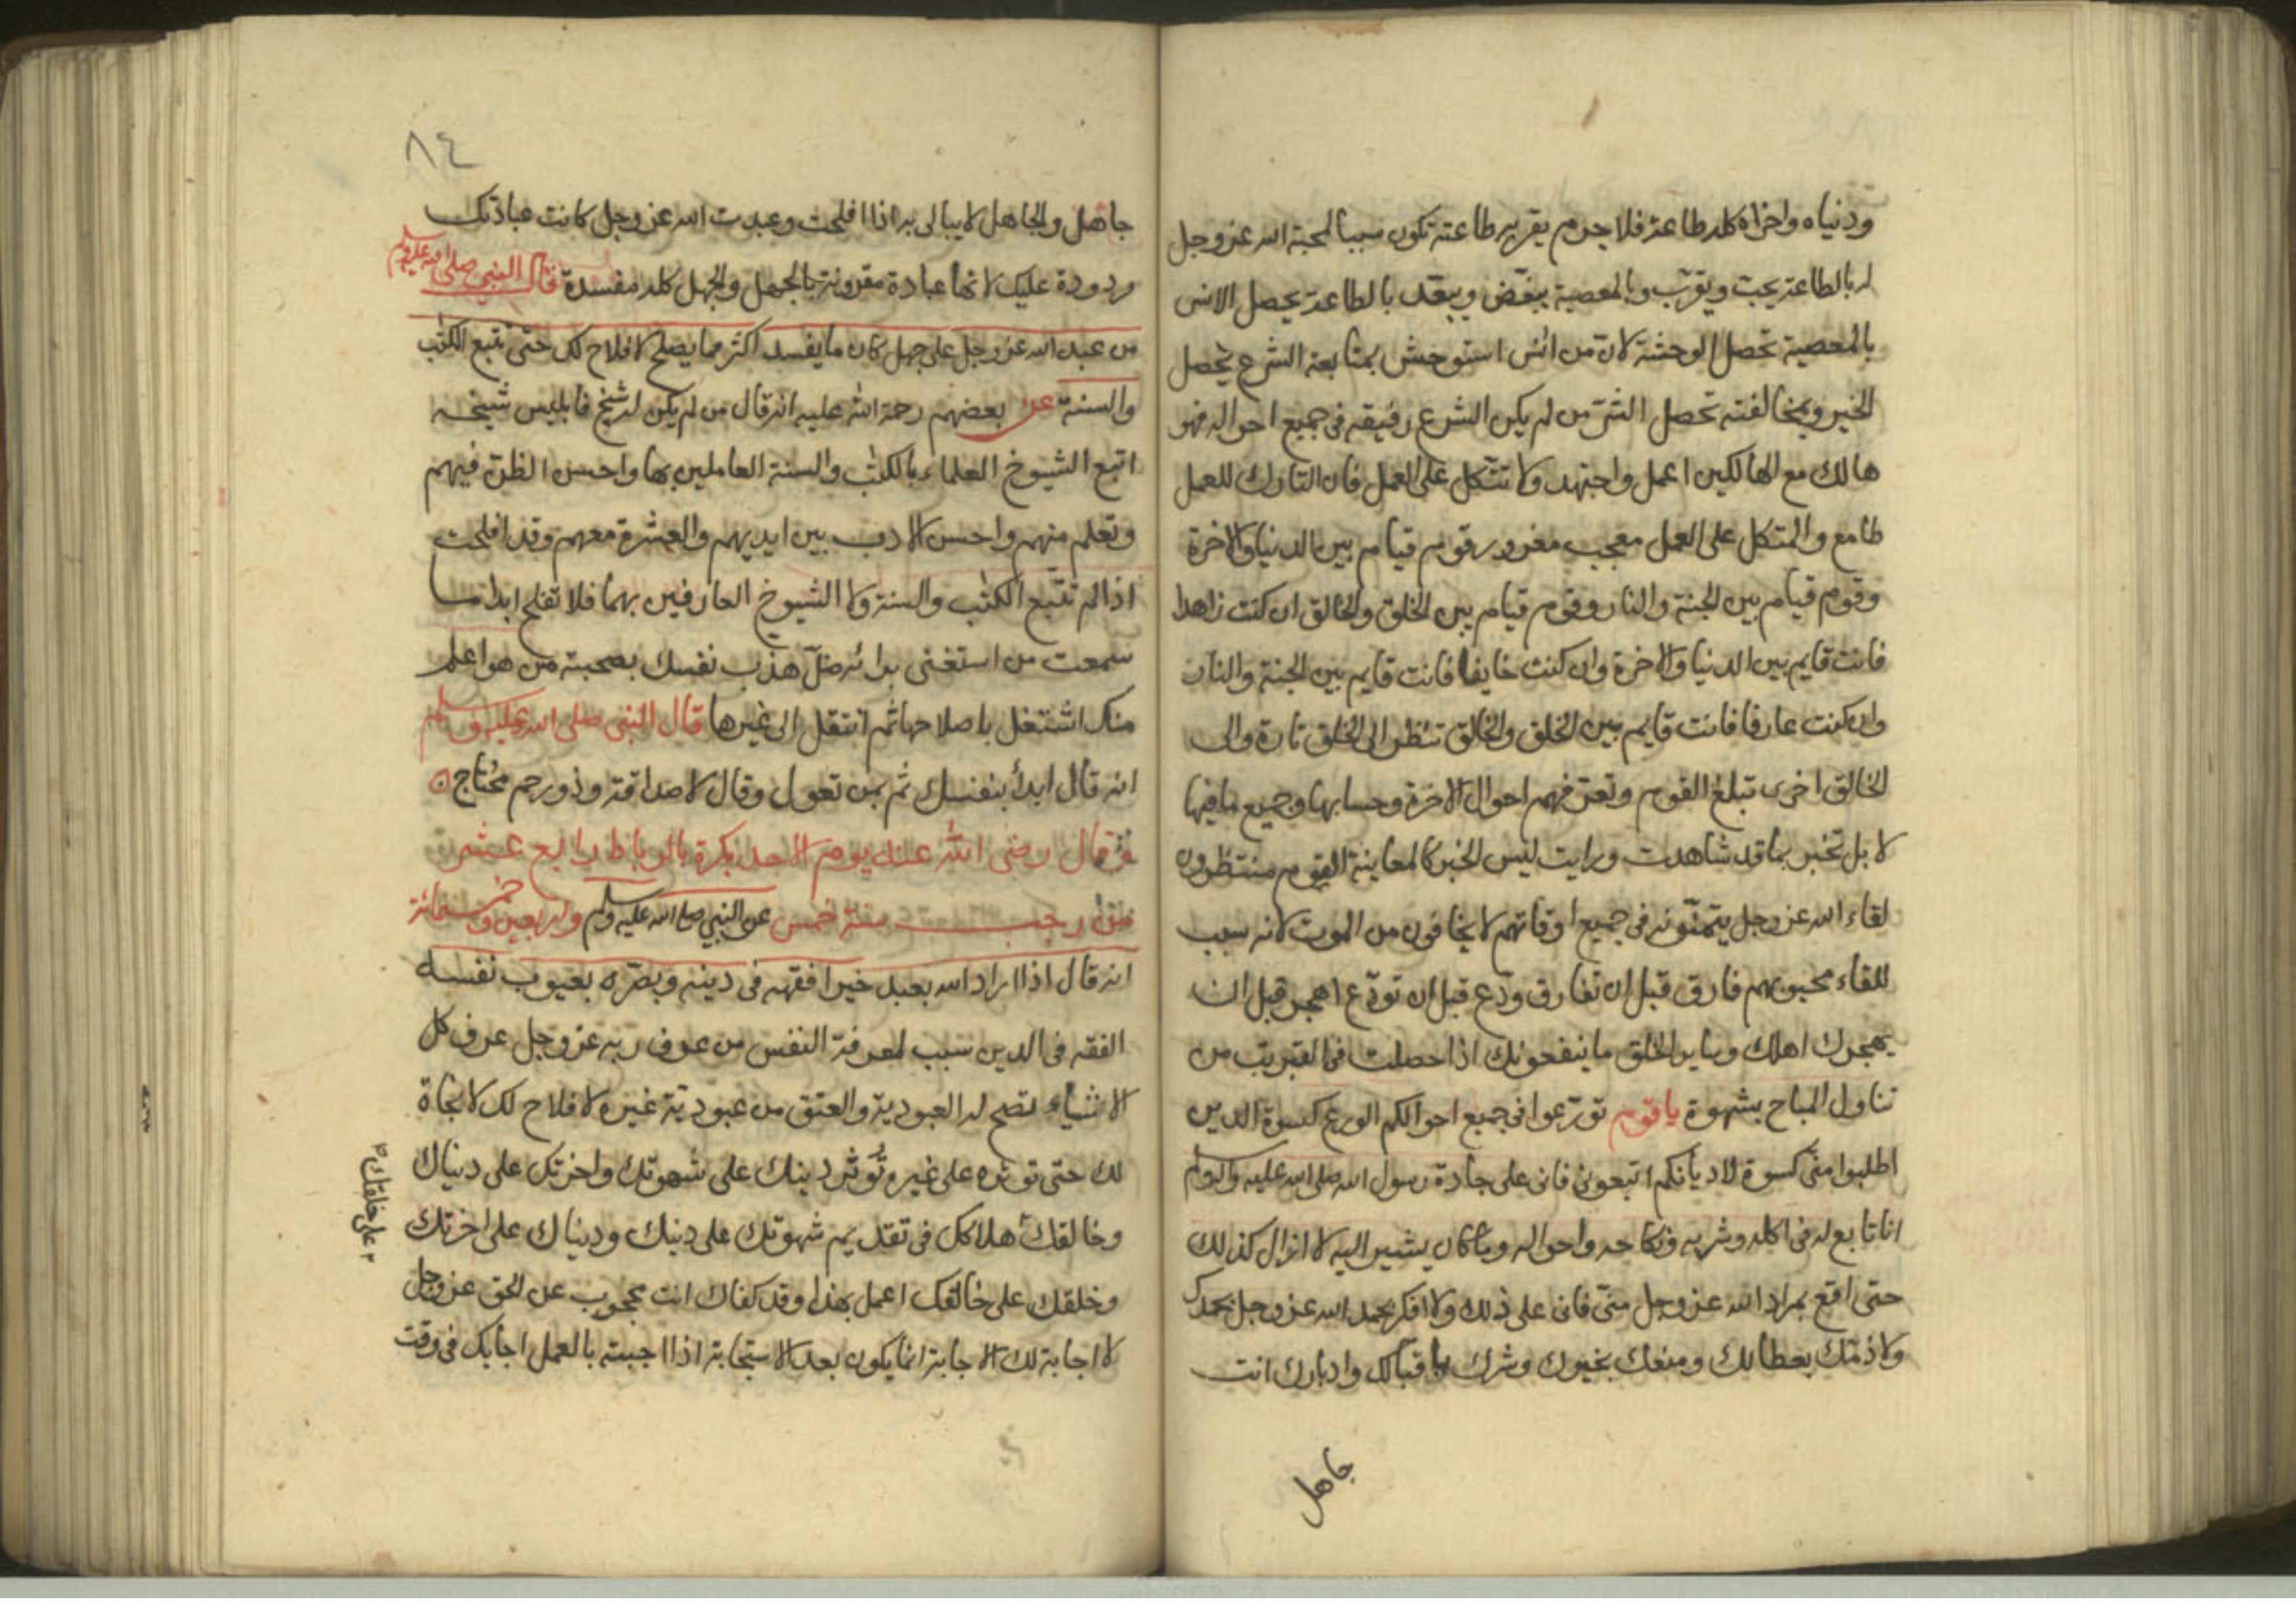 ودنياه واخراه كله طاعة فلا جرم يقربه طاعته تكون سببا لمحبة الله عز وجل
له بالطاعة يحبّ ويقرّب وبالمعصية يبغّض ويبعّد بالطاعة يحصل الانس
بالمعصية تحصل الوحشة لانّ من اسٔ استوحش بمتابعة الشرع يحصل
الخير وبمخالفته تحصل الشرّ من لم يكن الشرع رفيقه فى جميع احواله فهو
هالك مع الهالكين اعمل واجتهد ولا تتّكل على العمل فان التارك للعمل
طامع والمتكل على العمل معجب مغرور قوم قيام بين الدنيا والاخرة
وقوم قيام بين الجنة والنار وقوم قيام بين الخلق والخالق ان كنت زاهدا
فانت قايم بين الدنيا والاخرة وان كنت خايفا فانت قايم بين الجنة والنار
وان كنت عارفا فانت قايم بين الخلق والخالق تنظر الى الخلق تارة والى
الخالق اخرى تبلغ القوم وتعرّفهم احوال الاخرة وحسابها وجميع ما فيها
لا بل تخبر بما قد شاهدت ورايت ليس الخبر كالمعاينة القوم منتظرون
لقاء الله عز وجل يتمنّونه فى جميع اوقاتهم لا يخافون من الموت لانه سبب
للقاء محبوبهم فارق قبل ان تفارق ودّع قبل ان تودّع اهجر قبل ان
يهجرك اهلك وساير الخلق ما ينفعونك اذا حصلت فى القبر تب من
تناول المباح بشهوة يا قوم تورّعوا فى جميع احوالكم الورع كسوة الدين
اطلبوا منّى كسوة لاديانكم اتبعونى فانى على جادة رسول الله صلى الله عليه واله وسلم
انا تابع له فى اكله وشربه ونكاحه واحواله وما كان يشير اليه لا ازال كذلك
حتى اقع بمراد الله عز وجل منّى فانى على ذلك ولا افكر بحمد الله عز وجل بحمدك
ولا ذمّك بعطائك ومنعك بخيرك وشرك باقبالك وادبارك انت
جاهل
٨٤
جاهل والجاهل لا يبالى به اذا افلحت وعبدت الله عز وجل كانت عبادتك
مردودة عليك لانها عبادة مقرونة بالجهل والجهل كله مفسدة قال النبي صلى الله عليه وسلم
من عبد الله عز وجل على جهل كان ما يفسد اكثر مما يصلح لا فلاح لك حتى تتبع الكتٰب
والسنة عن بعضهم رحمة الله عليه انه قال من لم يكن له شيخ فابليس شيخه
اتبع الشيوخ العلماء بالكتٰب والسنة العاملين بها واحسن الظن فيهم
وتعلم منهم واحسن الادب بين ايديهم والعشرة معهم وقد افلحت
اذا لم تتّبع الكتٰب والسنة ولا الشيوخ العارفين بهما فلا تفلح ابدا ما
سمعت من استغنى برائه ضلّ هذب نفسك بصحبة من هو اعلم
منك اشتغل باصلاحها ثم انتقل الى غيرها قال النبى صلى الله عليه وسلم
انه قال ابدأ بنفسك ثم بمن تعول وقال لا صداقة وذو رحم محتاج
وقال رضى الله عنه يوم الاحد بكرة بالرباط رابع عشر
من رجب سنة خمس واربعين وخمسمائة عن النبي صلى الله عليه وسلم
انه قال اذا اراد الله بعبد خيرا فقهه فى دينه وبصّره بعيوب نفسه
الفقه فى الدين سبب لمعرفة النفس من عرف ربه عز وجل عرف كل
الاشياء تصح له العبودية والعتق من عبودية غيره لا فلاح لك لا نجاة
لك حتى تؤثره على غيره وتُؤثر دينك على شهوتك واخرتك على دنياك
وخالقك هلاكك فى تقديم شهوتك على دينك ودنياك على اخرتك
وخلقك على خالقك اعمل بهذا وقد كفاك انت محجوب عن الحق عز وجل
لا اجابة لك الاجابة انما يكون بعد الاستجابة اذا اجبته بالعمل اجابك فى وقت
على خلقك